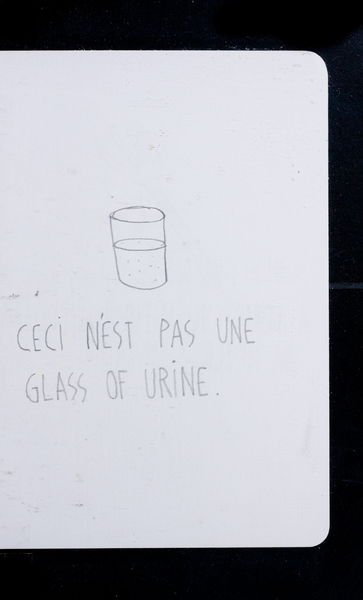 CECI N'EST PAS UNE
GLASS OF URINE.